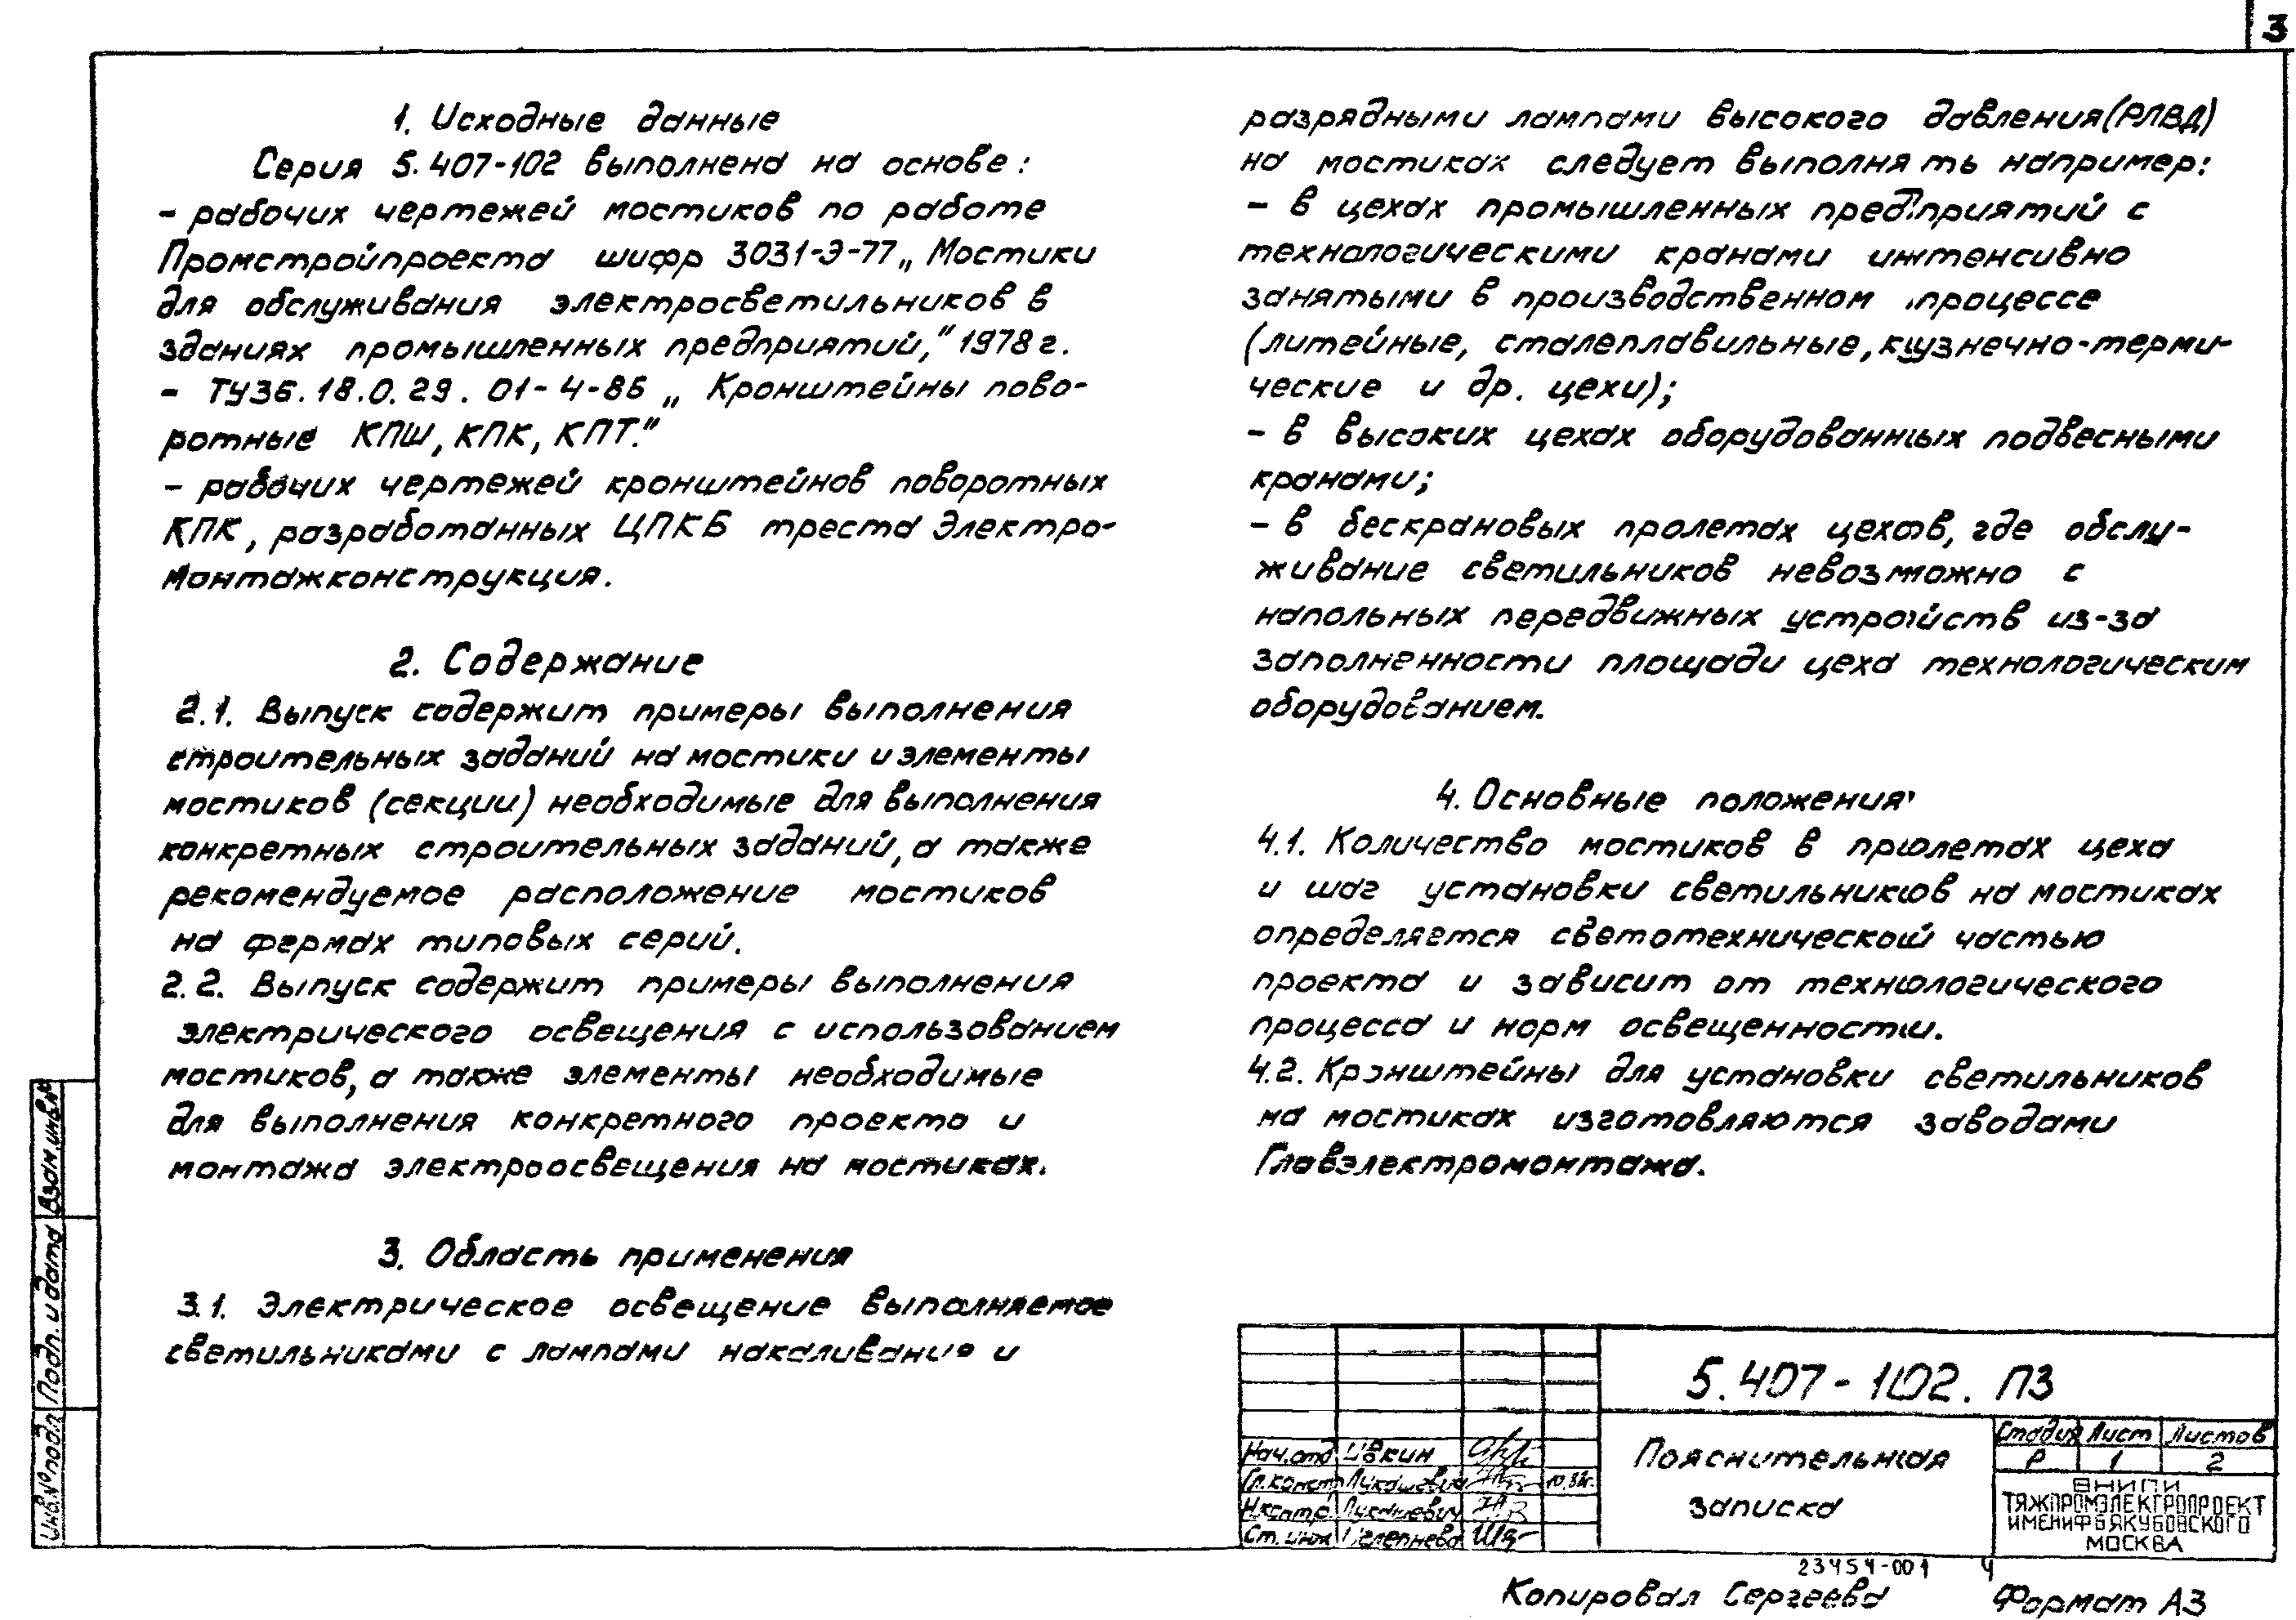 3
1. Исходные данные
Серия 5.407-102 выполнена на основе:
- рабочих чертежей мостиков по работе
Промстройпроекта шифр 3031-Э-77 „Мостики
для обслуживания электросветильников в
зданиях промышленных предприятий,” 1978 г.
- ТУ36.18.0.29.01-4-86 „Кронштейны пово-
ротные КПШ, КПК, КПТ.”
- рабочих чертежей кронштейнов поворотных
КПК, разработанных ЦПКБ треста Электро-
монтажконструкция.
2. Содержание
2.1. Выпуск содержит примеры выполнения
строительных заданий на мостики и элементы
мостиков (секции) необходимые для выполнения
конкретных строительных заданий, а также
рекомендуемое расположение мостиков
на фермах типовых серий.
2.2. Выпуск содержит примеры выполнения
электрического освещения с использованием
мостиков, а также элементы необходимые
для выполнения конкретного проекта и
монтажа электроосвещения на мостиках.
3. Область применения
3.1. Электрическое освещение выполняемое
светильниками с лампами накаливания и
разрядными лампами высокого давления (РЛВД)
на мостиках следует выполнять например:
- в цехах промышленных предприятий с
технологическими кранами интенсивно
занятыми в производственном процессе
(литейные, сталеплавильные, кузнечно-терми-
ческие и др. цехи);
- в высоких цехах оборудованных подвесными
кранами;
- в бескрановых пролетах цехов, где обслу-
живание светильников невозможно с
напольных передвижных устройств из-за
заполненности площади цеха технологическим
оборудованием.
4. Основные положения
4.1. Количество мостиков в пролетах цеха
и шаг установки светильников на мостиках
определяется светотехнической частью
проекта и зависит от технологического
процесса и норм освещенности.
4.2. Кронштейны для установки светильников
на мостиках изготовляются заводами
Главэлектромонтажа.
Взам. инв. №
Подп. и дата
Инв. № подл
5.407-102. ПЗ
Нач. отд
Гл. констр Лукашевич
Н. контр Лукашевич
Ст. инж
Пояснительная
записка
Стадия Лист Листов
Р 1 2
ВНИПИ
ТЯЖПРОМЭЛЕКТРОПРОЕКТ
ИМЕНИ Ф Б ЯКУБОВСКОГО
МОСКВА
23454-001 4
Копировал Сергеева Формат А3